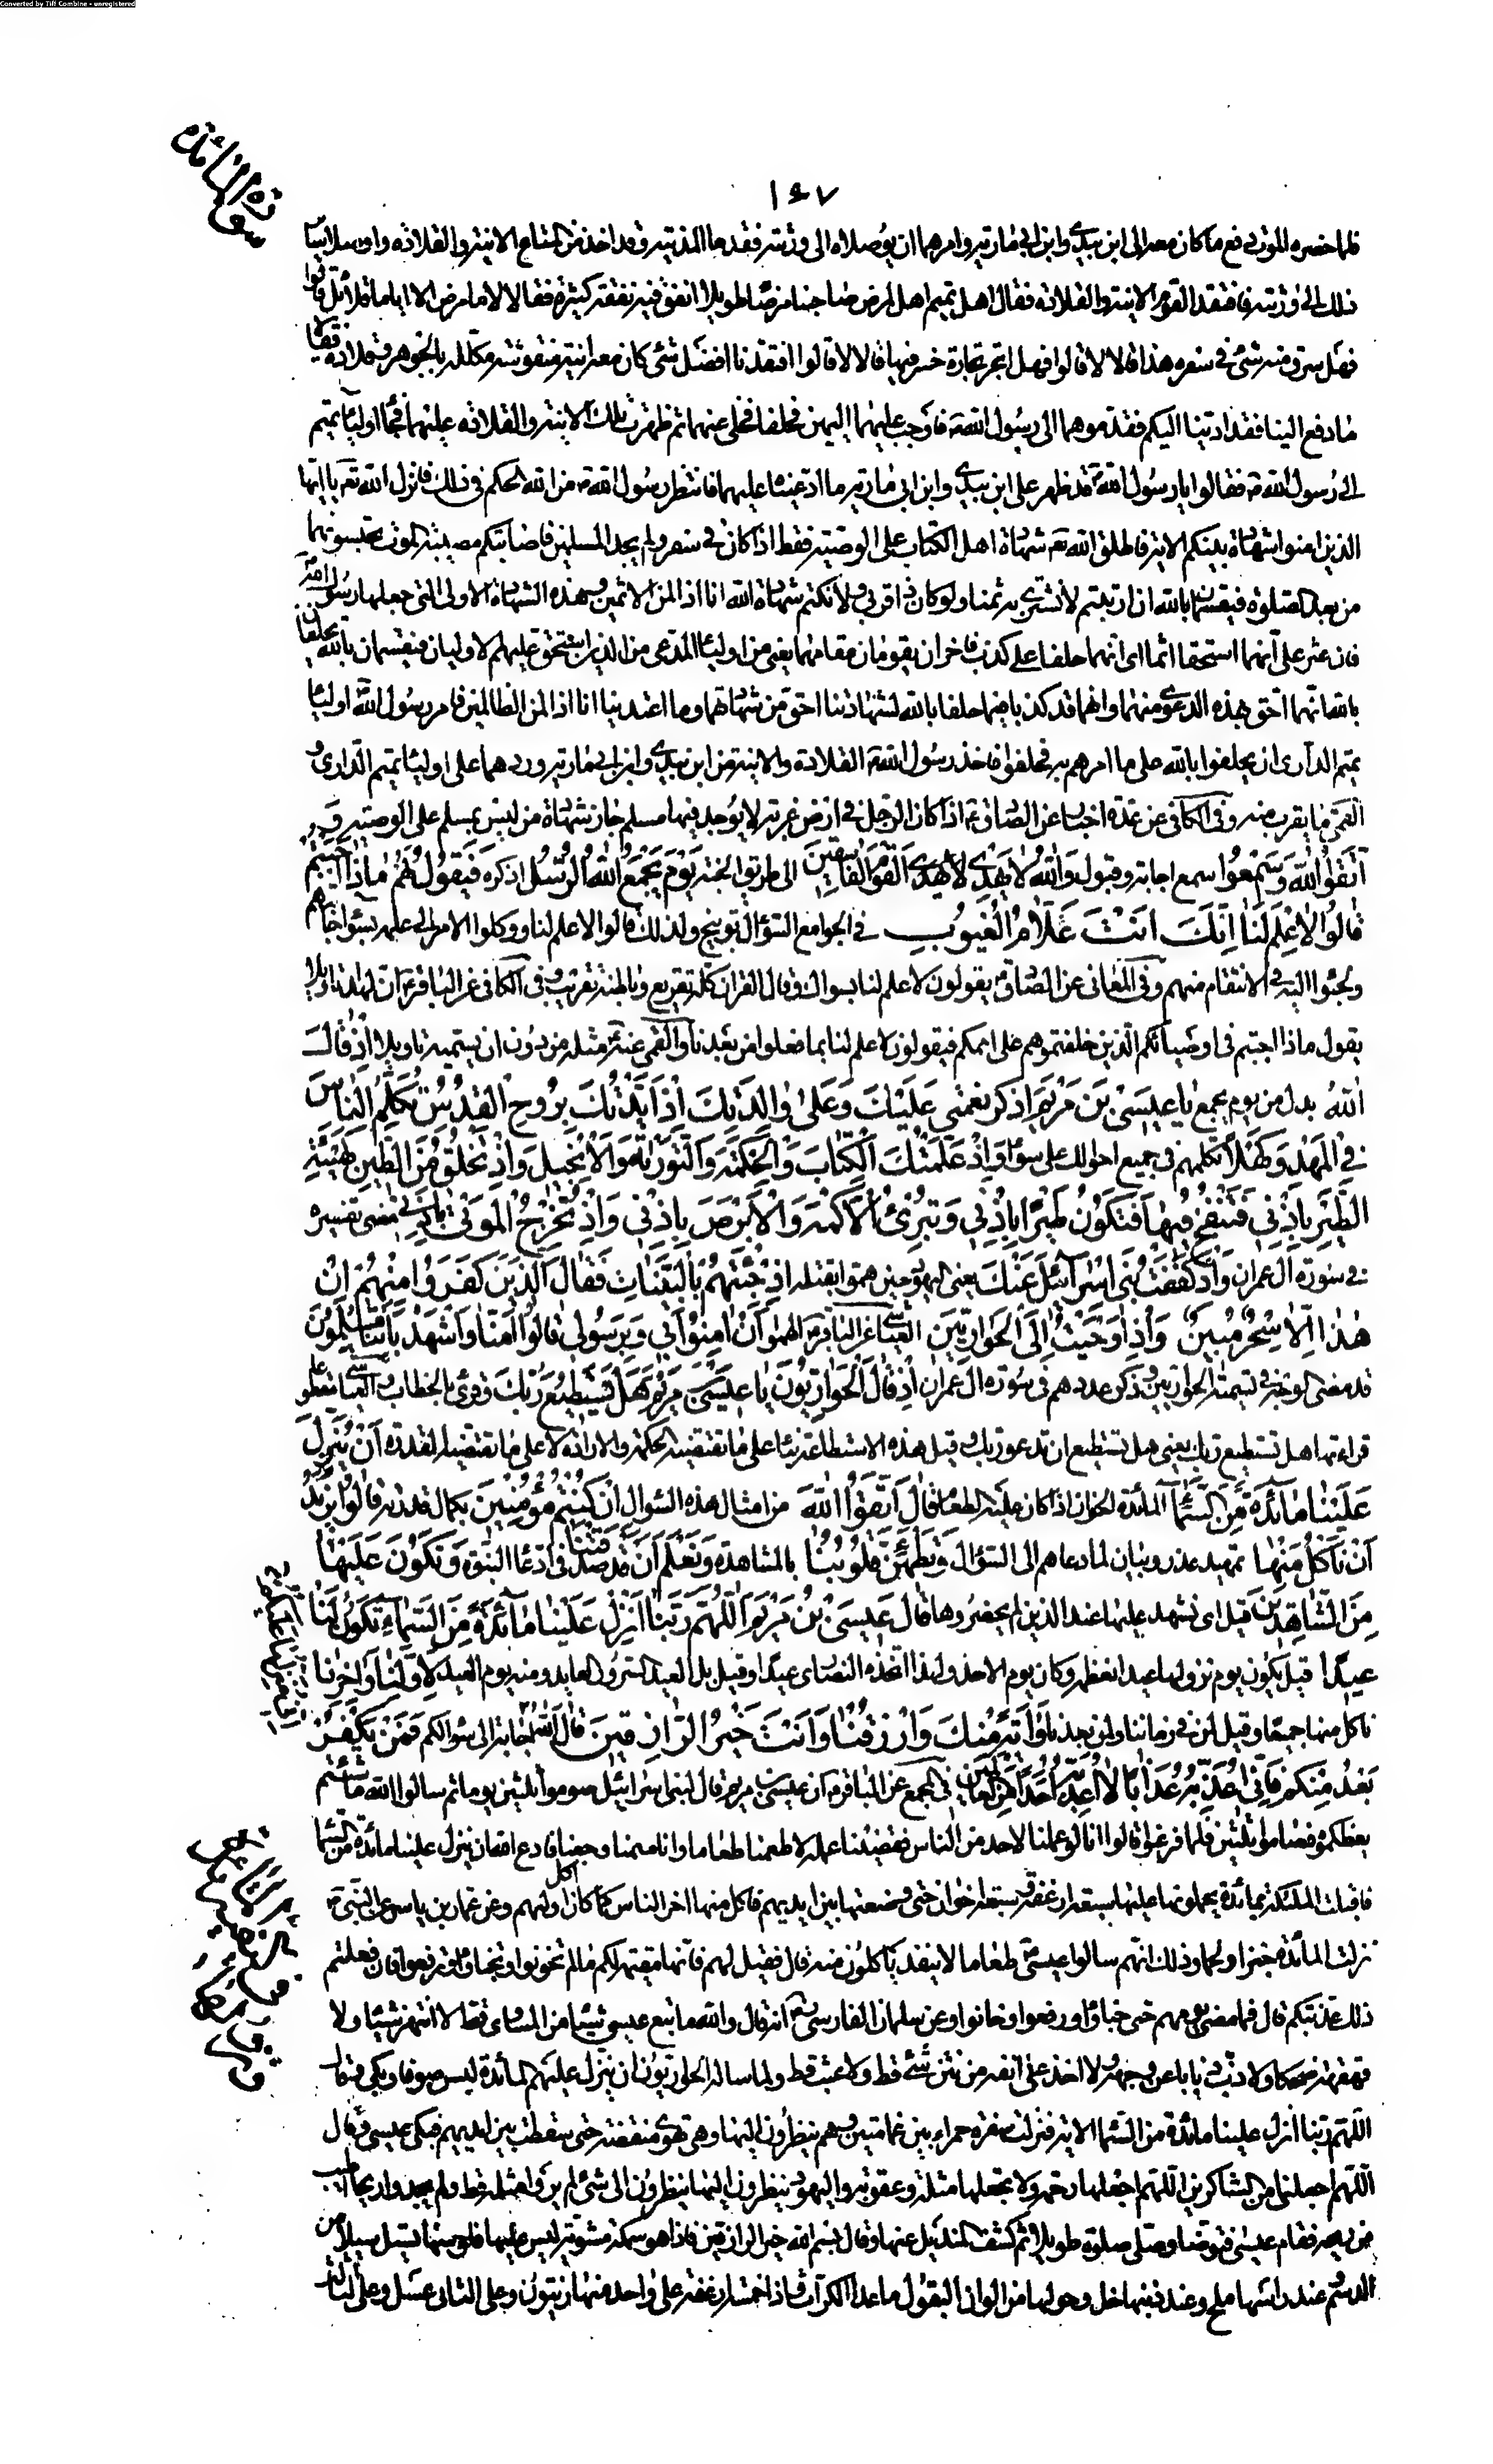 Converted by Tiff Combine - unregistered
سورة المائدة
١٤٧
فلما حضره الموت دفع ما كان معه الى ابن بيدى وابن ابى مارية وامرهما ان يوصلاه الى ورثته فقدما المدينة وقد اخذا من المتاع الانية والقلادة واوصلا سائر
ذلك الى ورثته فافتقد القوم الانية والقلادة فقال اهل تميم هل مرض صاحبنا مرضا طويلا انفق فيه نفقة كثيرة فقالا لا ما مرض الا اياما قلائل قالوا
فهل سرق منه شئ فى سفره هذا قالا لا قالوا فهل اتجر تجارة خسر فيها قالا لا قالوا افتقدنا افضل شئ كان معه انية منقوشة مكللة بالجوهر وقلادة فقالا
ما دفع الينا فقد اديناه اليكم فقدموهما الى رسول الله ص فاوجب عليهما اليمين فحلفا فخلى عنهما ثم ظهرت تلك الانية والقلادة عليهما فجاء اولياء تميم
الى رسول الله ص فقالوا يا رسول الله قد ظهر على ابن بيدى وابن ابى مارية ما ادعيناه عليهما فانتظر رسول الله ص من الله الحكم فى ذلك فانزل الله تع يا ايها
الذين امنوا شهادة بينكم الاية فاطلق الله تع شهادة اهل الكتاب على الوصية فقط اذا كان فى سفر ولم يجد المسلمين فاصابتكم مصيبة الموت تحبسونهما
من بعد الصلوة فيقسمان بالله ان ارتبتم لا نشترى به ثمنا ولو كان ذا قربى ولا نكتم شهادة الله انا اذا لمن الاثمين فهذه الشهادة الاولى التى جعلها رسول الله
فان عثر على انهما استحقا اثما اى انهما حلفا على كذب فاخران يقومان مقامهما يعنى من اولياء المدعى من الذين استحق عليهم الاوليان فيقسمان بالله يحلفان
بالله انهما احق بهذه الدعوى منهما وانهما قد كذبا فيما حلفا بالله لشهادتنا احق من شهادتهما وما اعتدينا انا اذا لمن الظالمين فامر رسول الله اولياء
تميم الدارى ان يحلفوا بالله على ما امرهم به فحلفوا فاخذ رسول الله ص القلادة والانية من ابن بيدى وابن ابى مارية وردهما على اولياء تميم الدارى و
القمى ما يقرب منه وفى الكافى عن عدة اخبار عن الصادق ع اذا كان الرجل فى ارض غربة لا يوجد فيها مسلم جاز شهادة من ليس بمسلم على الوصية و
اتَّقُوا اللهَ وَاسْمَعُوا سمع اجابة وقبول وَاللهُ لَا يَهْدِى الْقَوْمَ الْفَاسِقِينَ الى طريق الجنة يَوْمَ يَجْمَعُ اللهُ الرُّسُلَ اذكره فَيَقُولُ لهم مَاذَا أُجِبْتُمْ
قَالُوا لَا عِلْمَ لَنَا إِنَّكَ أَنْتَ عَلَّامُ الْغُيُوبِ فى الجوامع السؤال توبيخ ولذلك قالوا لا علم لنا ووكلوا الامر الى علمه بسوء اجابتهم
ولجئوا اليه فى الانتقام منهم وفى المعانى عن الصادق ع يقولون لا علم لنا بسواك وقال القران كله تقريع وباطنه تقريب وفى الكافى عن الباقر ع ان لهذا تاويلا
يقول ماذا اجبتم فى اوصيائكم الذين خلفتموهم على اممكم فيقولون لا علم لنا بما فعلوا من بعدنا والقمى عنه ع مثله من دون ان يسميه تاويلا إِذْ قَالَ
اللهُ بدل من يوم يجمع يَا عِيسَى بْنَ مَرْيَمَ اذْكُرْ نِعْمَتِى عَلَيْكَ وَعَلَى وَالِدَتِكَ إِذْ أَيَّدْتُكَ بِرُوحِ الْقُدُسِ تُكَلِّمُ النَّاسَ
فِى الْمَهْدِ وَكَهْلًا تكلمهم فى جميع احوالك على سواء وَإِذْ عَلَّمْتُكَ الْكِتَابَ وَالْحِكْمَةَ وَالتَّوْرَاةَ وَالْإِنْجِيلَ وَإِذْ تَخْلُقُ مِنَ الطِّينِ كَهَيْئَةِ
الطَّيْرِ بِإِذْنِى فَتَنْفُخُ فِيهَا فَتَكُونُ طَيْرًا بِإِذْنِى وَتُبْرِئُ الْأَكْمَهَ وَالْأَبْرَصَ بِإِذْنِى وَإِذْ تُخْرِجُ الْمَوْتَى بِإِذْنِى مضى تفسيره
فى سورة ال عمران وَإِذْ كَفَفْتُ بَنِى إِسْرَائِيلَ عَنْكَ يعنى اليهود حين هموا بقتله إِذْ جِئْتَهُمْ بِالْبَيِّنَاتِ فَقَالَ الَّذِينَ كَفَرُوا مِنْهُمْ إِنْ
هَذَا إِلَّا سِحْرٌ مُبِينٌ وَإِذْ أَوْحَيْتُ إِلَى الْحَوَارِيِّينَ العياشى عن الباقر ع الهموا أَنْ آمِنُوا بِى وَبِرَسُولِى قَالُوا آمَنَّا وَاشْهَدْ بِأَنَّنَا مُسْلِمُونَ
قد مضى الوجه فى تسمية الحواريين وذكر عددهم فى سورة ال عمران إِذْ قَالَ الْحَوَارِيُّونَ يَا عِيسَى بْنَ مَرْيَمَ هَلْ يَسْتَطِيعُ رَبُّكَ وقرئ بالخطاب
قراءتها هل تستطيع ربك يعنى هل تستطيع ان تدعو ربك وقيل هذه الاستطاعة بناء على ما تقتضيه الحكمة والارادة لا على ما تقتضيه القدرة أَنْ يُنَزِّلَ
عَلَيْنَا مَائِدَةً مِنَ السَّمَاءِ المائدة الخوان اذا كان عليه الطعام قَالَ اتَّقُوا اللهَ من امثال هذه السؤال إِنْ كُنْتُمْ مُؤْمِنِينَ بكمال قدرته قَالُوا نُرِيدُ
أَنْ نَأْكُلَ مِنْهَا تمهيد عذر وبيان لما دعاهم الى السؤال وَتَطْمَئِنَّ قُلُوبُنَا بالمشاهدة وَنَعْلَمَ أَنْ قَدْ صَدَقْتَنَا فى ادعاء النبوة وَنَكُونَ عَلَيْهَا
مِنَ الشَّاهِدِينَ قيل اى نشهد عليها عند الذين لم يحضروها قَالَ عِيسَى بْنُ مَرْيَمَ اللَّهُمَّ رَبَّنَا أَنْزِلْ عَلَيْنَا مَائِدَةً مِنَ السَّمَاءِ تَكُونُ لَنَا
عِيدًا قيل يكون يوم نزولها عيدا نعظمه وكان يوم الاحد ولهذا اتخذه النصارى عيدا وقيل بل العيد السرور العايد ومنه يوم العيد لِأَوَّلِنَا وَآخِرِنَا
ناكل منها جميعا وقيل لمن فى زماننا ولمن بعدنا وَآيَةً مِنْكَ وَارْزُقْنَا وَأَنْتَ خَيْرُ الرَّازِقِينَ قَالَ اللهُ اجابة الى سؤالكم فَمَنْ يَكْفُرْ
بَعْدُ مِنْكُمْ فَإِنِّى أُعَذِّبُهُ عَذَابًا لَا أُعَذِّبُهُ أَحَدًا مِنَ الْعَالَمِينَ فى المجمع عن الباقر ع ان عيسى بن مريم قال لبنى اسرائيل صوموا ثلثين يوما ثم سالوا الله ما شئتم
يعطكموه فصاموا ثلثين فلما فرغوا قالوا انا لو عملنا لاحد من الناس فقضينا عمله لاطعمنا طعاما وانا صمنا وجعنا فادع الله ان ينزل علينا مائدة من السماء
فاقبلت الملئكة بمائدة يحملونها عليها سبعة ارغفة وسبعة اخوان حتى وضعتها بين ايديهم فاكل منها اخر الناس كما اكل اولهم وعن عمار بن ياسر عن النبى ص
نزلت المائدة خبزا ولحما وذلك انهم سالوا عيسى ع طعاما لا ينفد ياكلون منه قال فقيل لهم فانها مقيمة لكم ما لم تخونوا وتخباوا وترفعوا فان فعلتم
ذلك عذبتكم قال فما مضى يومهم حتى خباوا ورفعوا وخانوا وعن سلمان الفارسى انه قال والله ما تبع عيسى شيئا من المساوى قط ولا انتهر شيئا ولا
قهقه ضحكا ولا ذب ذبابا عن وجهه ولا اخذ على انفه من نتن شئ قط ولا عبث قط ولما ساله الحواريون ان ينزل عليهم المائدة لبس صوفا وبكى وقال
اللهم ربنا انزل علينا مائدة من السماء الاية فنزلت سفرة حمراء بين غمامتين وهم ينظرون اليها وهى تهوى منقضة حتى سقطت بين ايديهم فبكى عيسى وقال
اللهم اجعلنى من الشاكرين اللهم اجعلها رحمة ولا تجعلها مثلة وعقوبة واليهود ينظرون اليها ينظرون الى شئ لم يروا مثله قط ولم يجدوا ريحا اطيب
من ريحه فقام عيسى فتوضا وصلى صلوة طويلة ثم كشف المنديل عنها وقال بسم الله خير الرازقين فاذا هو سمكة مشوية ليس عليها فلوسها تسيل سيلا من
الدسم عند راسها ملح وعند ذنبها خل وحولها من الوان البقول ما عدا الكراث واذا خمسة ارغفة على واحد منها زيتون وعلى الثانى عسل وعلى الثالث